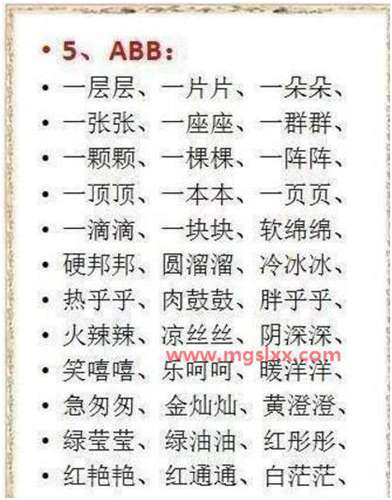 • 5、ABB：
• 一层层、一片片、一朵朵、
• 一张张、一座座、一群群、
• 一颗颗、一棵棵、一阵阵、
• 一顶顶、一本本、一页页、
• 一滴滴、一块块、软绵绵、
• 硬邦邦、圆溜溜、冷冰冰、
• 热乎乎、肉鼓鼓、胖乎乎、
• 火辣辣、凉丝丝、阴深深、
www.mgslxx.com
• 笑嘻嘻、乐呵呵、暖洋洋、
• 急匆匆、金灿灿、黄澄澄、
• 绿莹莹、绿油油、红彤彤、
• 红艳艳、红通通、白茫茫、